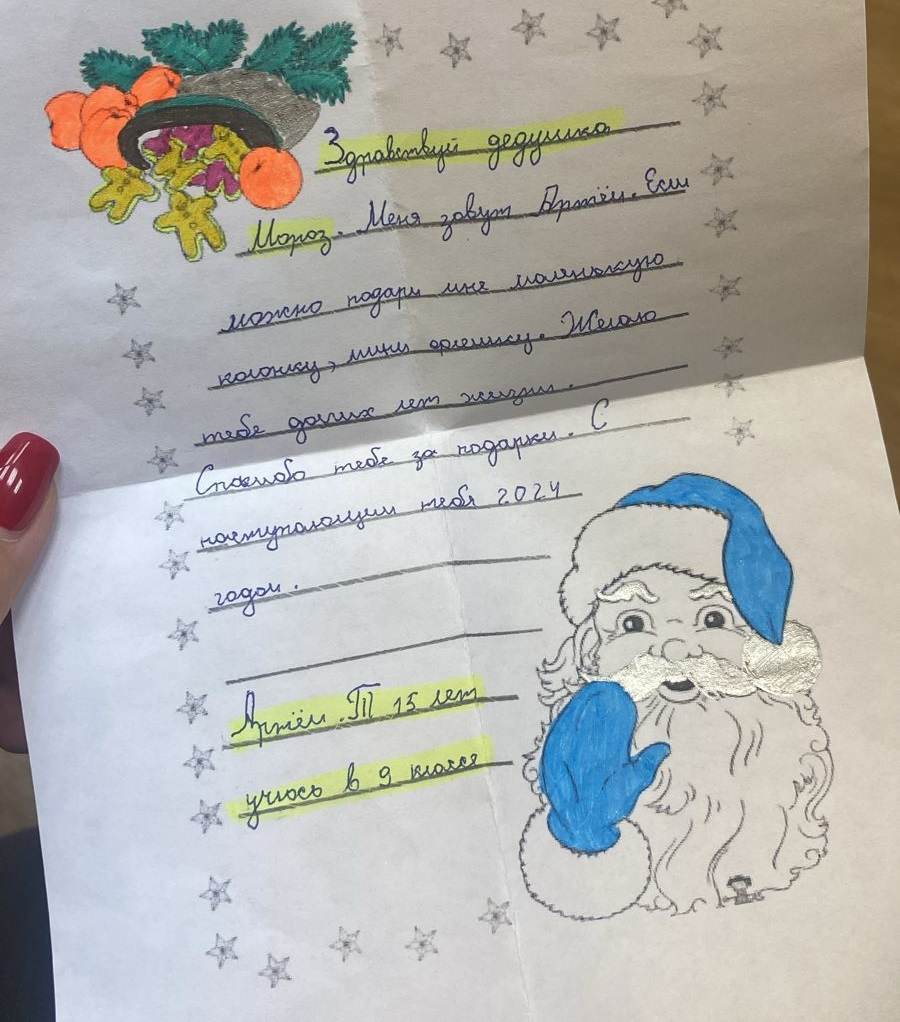 Здравствуй дедушка
Мороз. Меня зовут Артём. Если
можно подари мне маленькую
колонку, мини флешку. Желаю
тебе долгих лет жизни.
Спасибо тебе за подарки. С
наступающим тебя 2024
годом.
Артём.П 15 лет
учусь в 9 классе